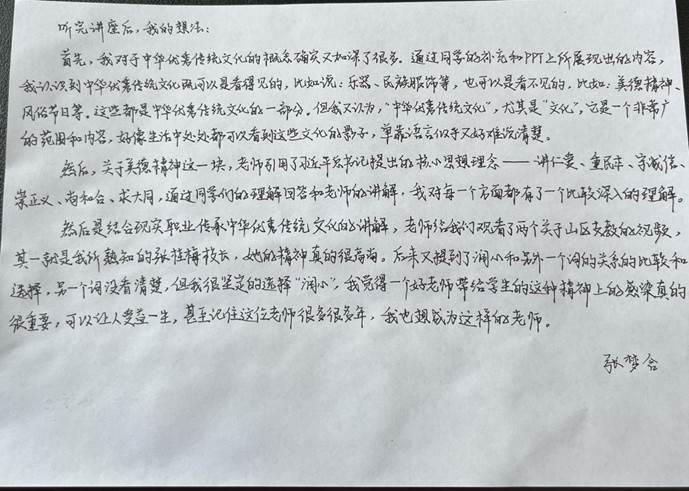 听完讲座后，我的想法：
首先，我对于中华优秀传统文化的概念确实又加深了很多。通过同学的补充和PPT上所展现出的内容，
我认识到中华优秀传统文化既可以是看得见的，比如说：乐器、民族服饰等，也可以是看不见的，比如：美德精神、
风俗节日等。这些都是中华优秀传统文化的一部分。但我又认为，“中华优秀传统文化”，尤其是“文化”，它是一个非常广
的范围和内容，好像生活中处处都可以看到这些文化的影子，单靠语言似乎又好难说清楚。
然后，关于美德精神这一块，老师引用了习近平总书记提出的核心思想理念——讲仁爱、重民本、守诚信、
崇正义、尚和合、求大同，通过同学们的理解回答和老师的讲解，我对每一个方面都有了一个比较深入的理解。
然后是结合现实职业传承中华优秀传统文化的讲解，老师给我们观看了两个关于山区支教的视频，
其一就是我所熟知的张桂梅校长，她的精神真的很高尚。后来又提到了润心和另外一个词的关系的比较和
选择，另一个词没看清楚，但我很坚定的选择“润心”，我觉得一个好老师带给学生的这种精神上的感染真的
很重要，可以让人受益一生，甚至记住这位老师很多很多年，我也想成为这样的老师。
张梦合